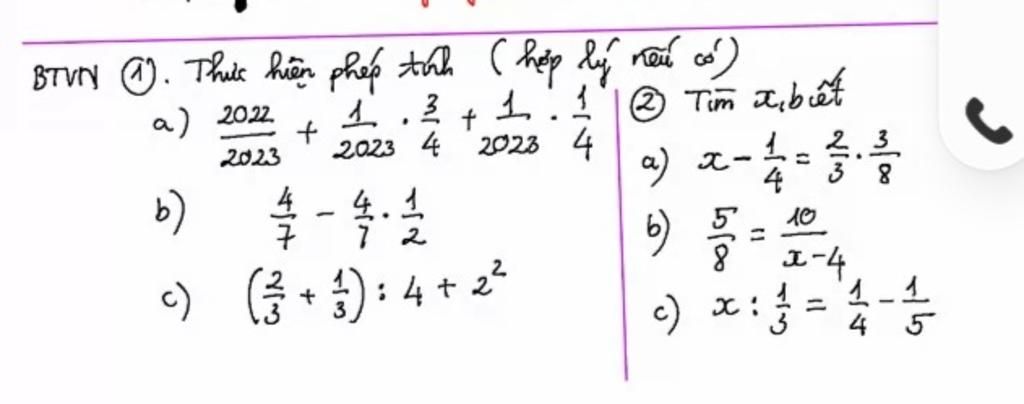 BTVN ①. Thực hiện phép tính (hợp lý nếu có)
a) 2022/2023 + 1/2023 . 3/4 + 1/2023 . 1/4
b) 4/7 - 4/7 . 1/2
c) (2/3 + 1/3) : 4 + 2²
② Tìm x, biết
a) x - 1/4 = 2/3 . 3/8
b) 5/8 = 10/(x-4)
c) x : 1/3 = 1/4 - 1/5